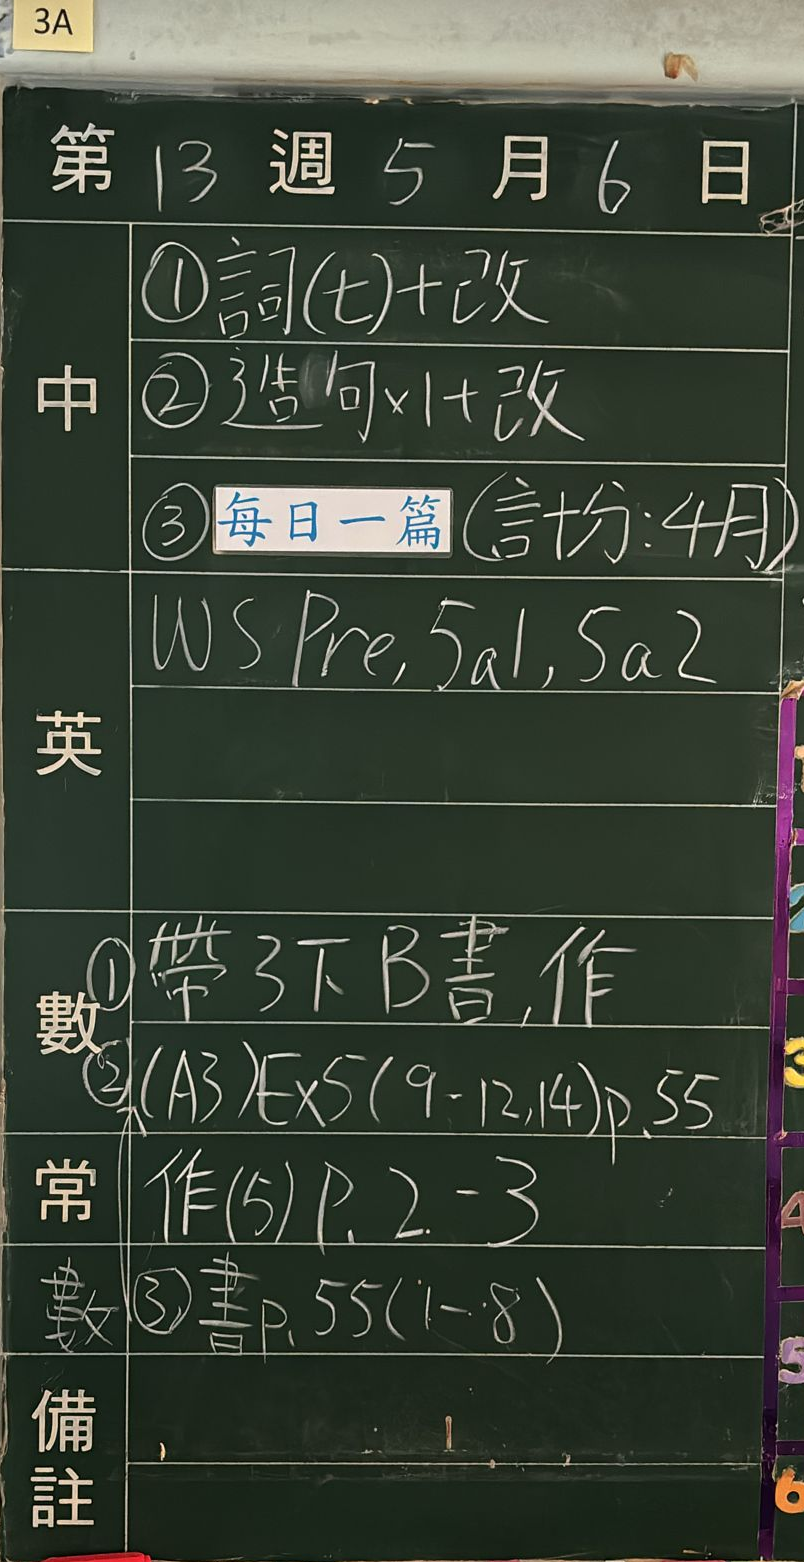 3A
第 13 週 5 月 6 日
中
①詞(七)+改
②造句×1+改
③每日一篇(計分:4月)
英
WS Pre, 5a1, 5a2
數
①帶3下B書,作
②(A3)Ex5(9-12,14)p.55
常
作(5)P.2-3
數
③書p.55(1-8)
備註
3
4
5
6